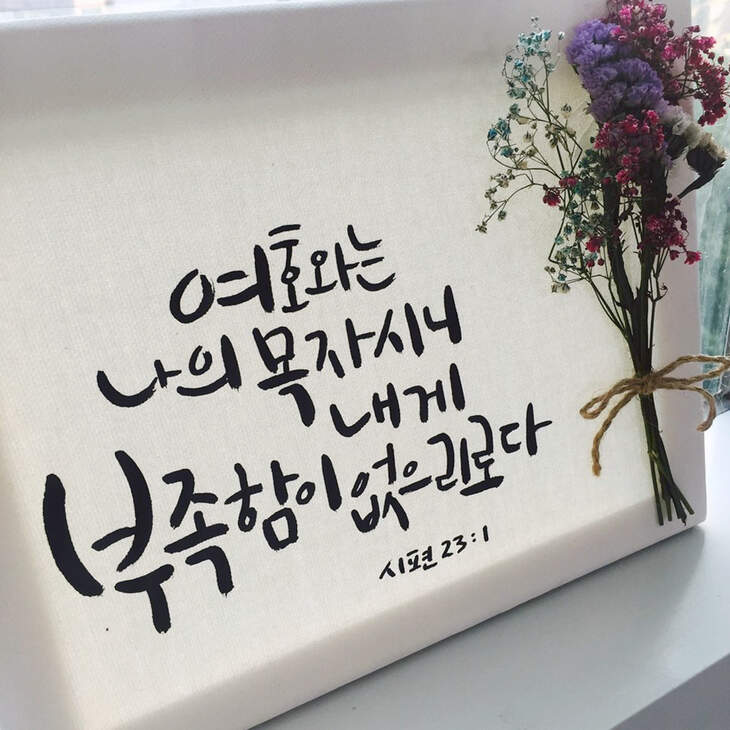 여호와는
나의 목자시니
내게
부족함이 없으리로다
시편 23:1